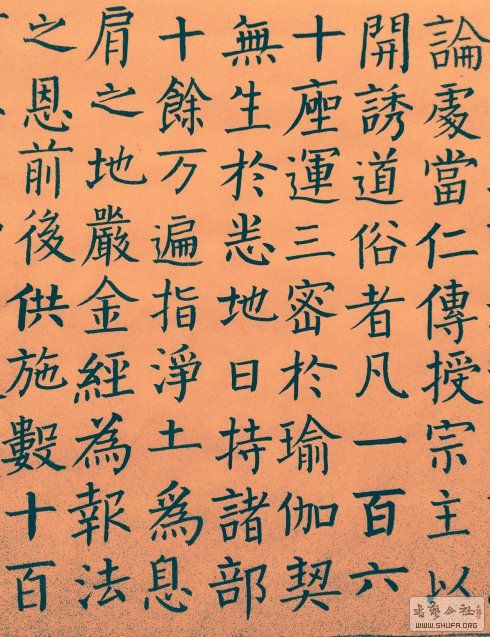 論處當仁傳授宗主以
開誘道俗者凡一百六
十座運三密於瑜伽契
無生於悉地日持諸部
十餘万遍指淨土為息
肩之地嚴金經為報法
之恩前後供施數十百
WWW.SHUFA.ORG